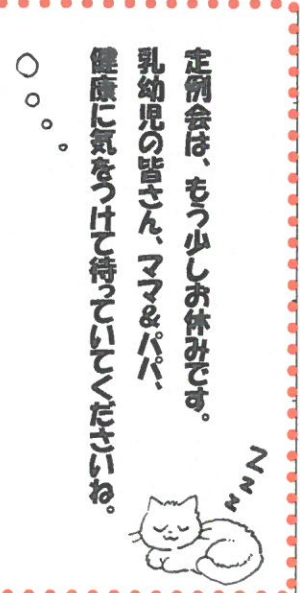 定例会は、もう少しお休みです。
乳幼児の皆さん、ママ&パパ、
健康に気をつけて待っていてくださいね。
ZZZ